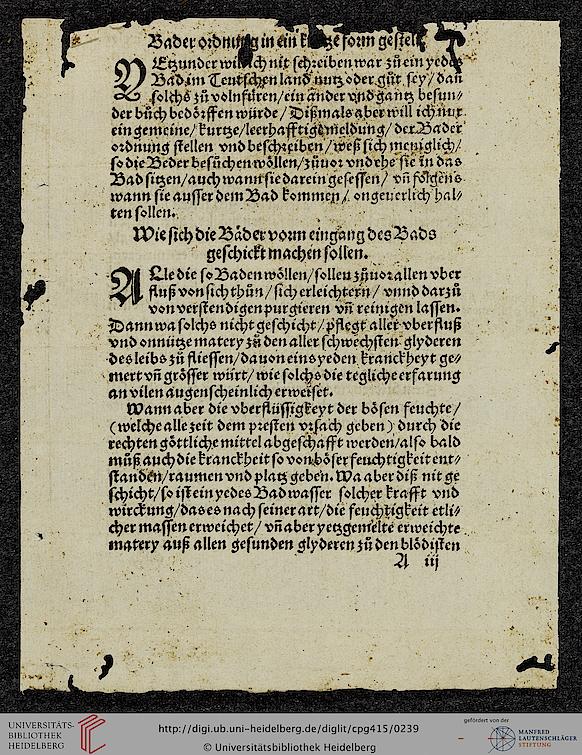 Bader ordnung in ein kurtze form gestelt
YEtzunder will ich nit schreiben war zů ein yedes
Bad im Teutschen land nutz oder gůt sey/ dañ
solchs zů volnfüren/ ein ander vnd gantz besun-
der bůch bedörffen würde/ Dißmals aber will ich nur
ein gemeine/ kurtze/ leerhafftige meldung/ der Bader
ordnung stellen vnd beschreiben/ weß sich meniglich/
so die Beder besůchen wöllen/ zůuor vnd ehe sie in das
Bad sitzen/ auch wann sie darein gesessen/ vñ folgens
wann sie ausser dem Bad kommen/ ongeuerlich hal-
ten sollen.
Wie sich die Bäder vorm eingang des Bads
geschickt machen sollen.
ALle die so Baden wöllen/ sollen zůuor allen vber
fluß von sich thůn/ sich erleichtern/ vnnd darzů
von verstendigen purgieren vñ reinigen lassen.
Dann wa solchs nicht geschicht/ pflegt aller vberfluß
vnd onnütze matery zů den aller schwechsten glyderen
des leibs zů fliessen/ dauon eins yeden kranckheyt ge-
mert vñ grösser würt/ wie solchs die tegliche erfarung
an vilen augenscheinlich erweiset.
Wann aber die vberflüssigkeyt der bösen feuchte/
(welche alle zeit dem presten vrsach geben) durch die
rechten göttliche mittel abgeschafft werden/ also bald
můß auch die kranckheit so von böser feuchtigkeit ent-
standen/ raumen vnd platz geben. Wa aber diß nit ge
schicht/ so ist ein yedes Bad wasser solcher krafft vnd
wirckung/ das es nach seiner art/ die feuchtigkeit etli-
cher massen erweichet/ vñ aber yetzgemelte erweichte
matery auß allen gesunden glyderen zů den blödisten
A iij
UNIVERSITÄTS-
BIBLIOTHEK
HEIDELBERG
http://digi.ub.uni-heidelberg.de/diglit/cpg415/0239
© Universitätsbibliothek Heidelberg
gefördert von der
MANFRED
LAUTENSCHLÄGER
STIFTUNG